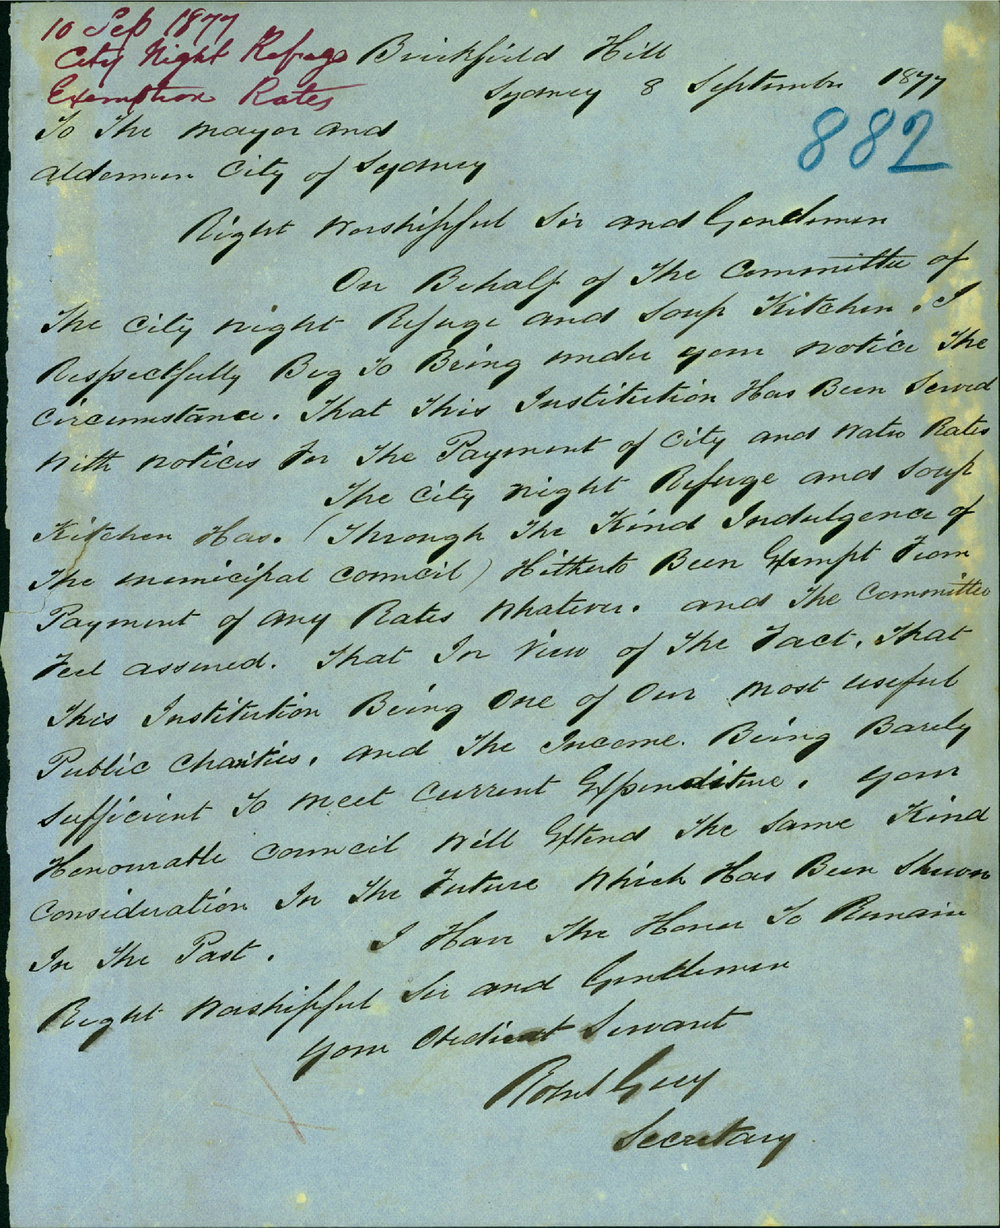 10 Sep 1877
City Night Refuge
Exemption Rates
Brickfield Hill
Sydney 8 September 1877
882
To The Mayor and
Aldermen City of Sydney
Right Worshipful Sir and Gendemen
On Behalf of The Committee of
The City Night Refuge and Soup Kitchen. I
Respectfully Beg To Bring under your notice The
Circumstance. That This Institution Has Been Served
With notices For The Payment of City and Water Rates
The City Night Refuge and Soup
Kitchen Has. (Through The Kind Indulgence of
The municipal Council) Hitherto Been Exempt From
Payment of Any Rates Whatever. and The Committee
Feel assured. That In View of The Fact. That
This Institution Being One of Our most useful
Public Charities, and The Income. Being Barely
Sufficient To meet Current Expenditure. Your
Honourable Council Will Extend The Same Kind
Consideration In The Future Which Has Been Shewn
In The Past. I Have The Honor To Remain
Right Worshipful Sir and Gentlemen
Your Obedient Servant
Robt Guy
Secretary